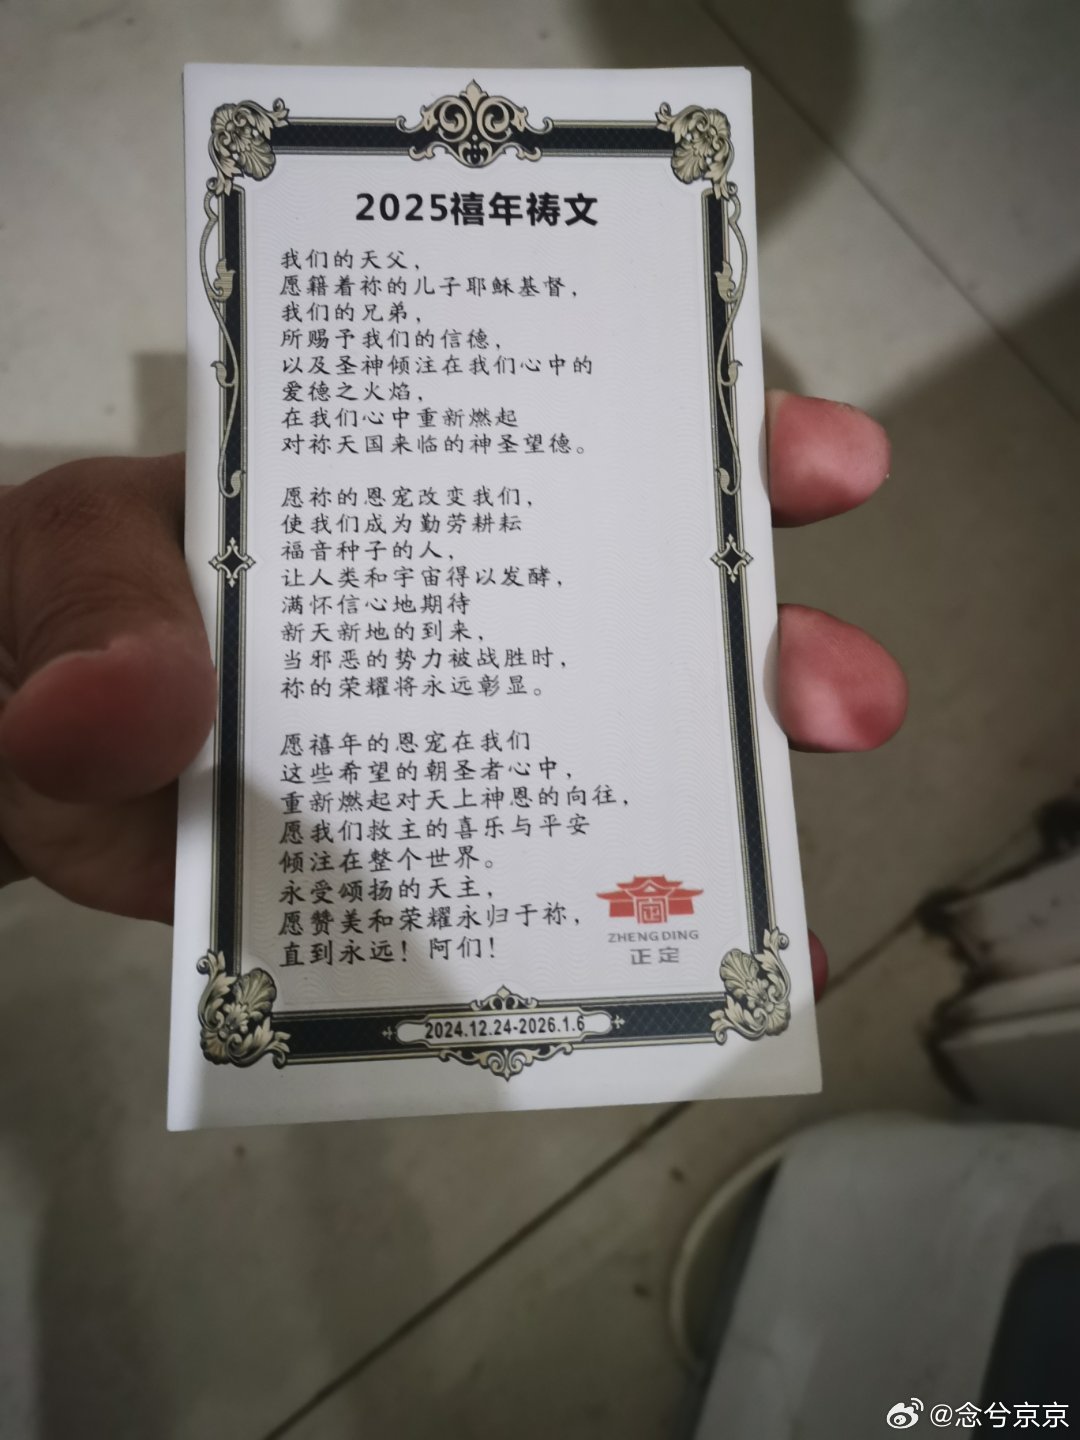 2025禧年祷文
我们的天父，
愿籍着祢的儿子耶稣基督，
我们的兄弟，
所赐予我们的信德，
以及圣神倾注在我们心中的
爱德之火焰，
在我们心中重新燃起
对祢天国来临的神圣望德。
愿祢的恩宠改变我们，
使我们成为勤劳耕耘
福音种子的人，
让人类和宇宙得以发酵，
满怀信心地期待
新天新地的到来，
当邪恶的势力被战胜时，
祢的荣耀将永远彰显。
愿禧年的恩宠在我们
这些希望的朝圣者心中，
重新燃起对天上神恩的向往，
愿我们救主的喜乐与平安
倾注在整个世界。
永受颂扬的天主，
愿赞美和荣耀永归于祢，
直到永远！阿们！
ZHENG DING
正定
2024.12.24-2026.1.6
@念兮京京